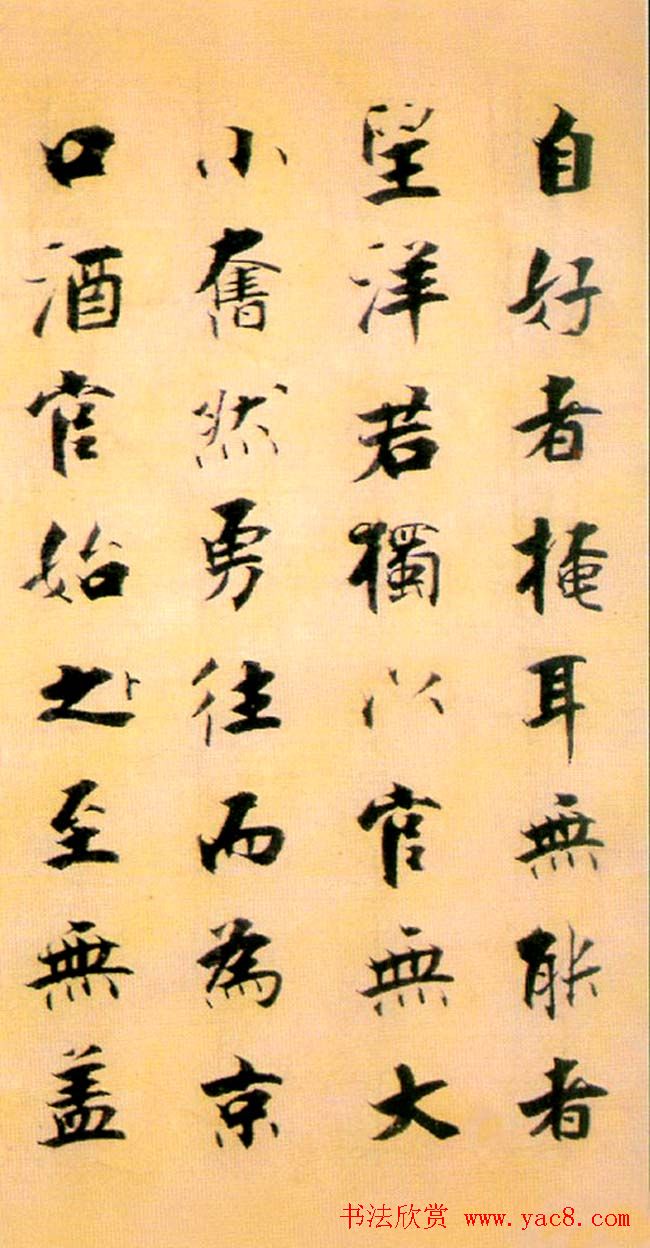 自好者掩耳無能者
望洋若獨以官無大
小奮然勇往而為京
口酒官始赴至無盖
书法欣赏 www.yac8.com